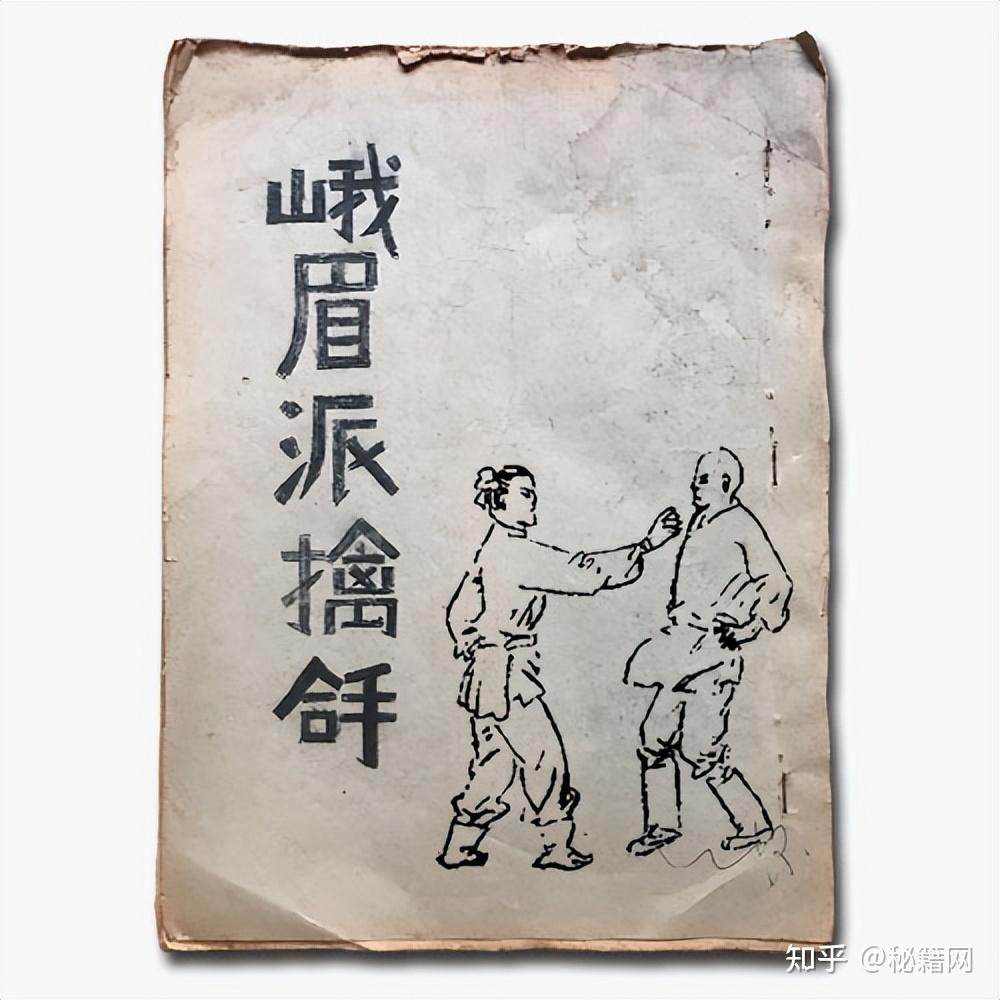 峨眉派擒䶎
知乎 @秘籍网